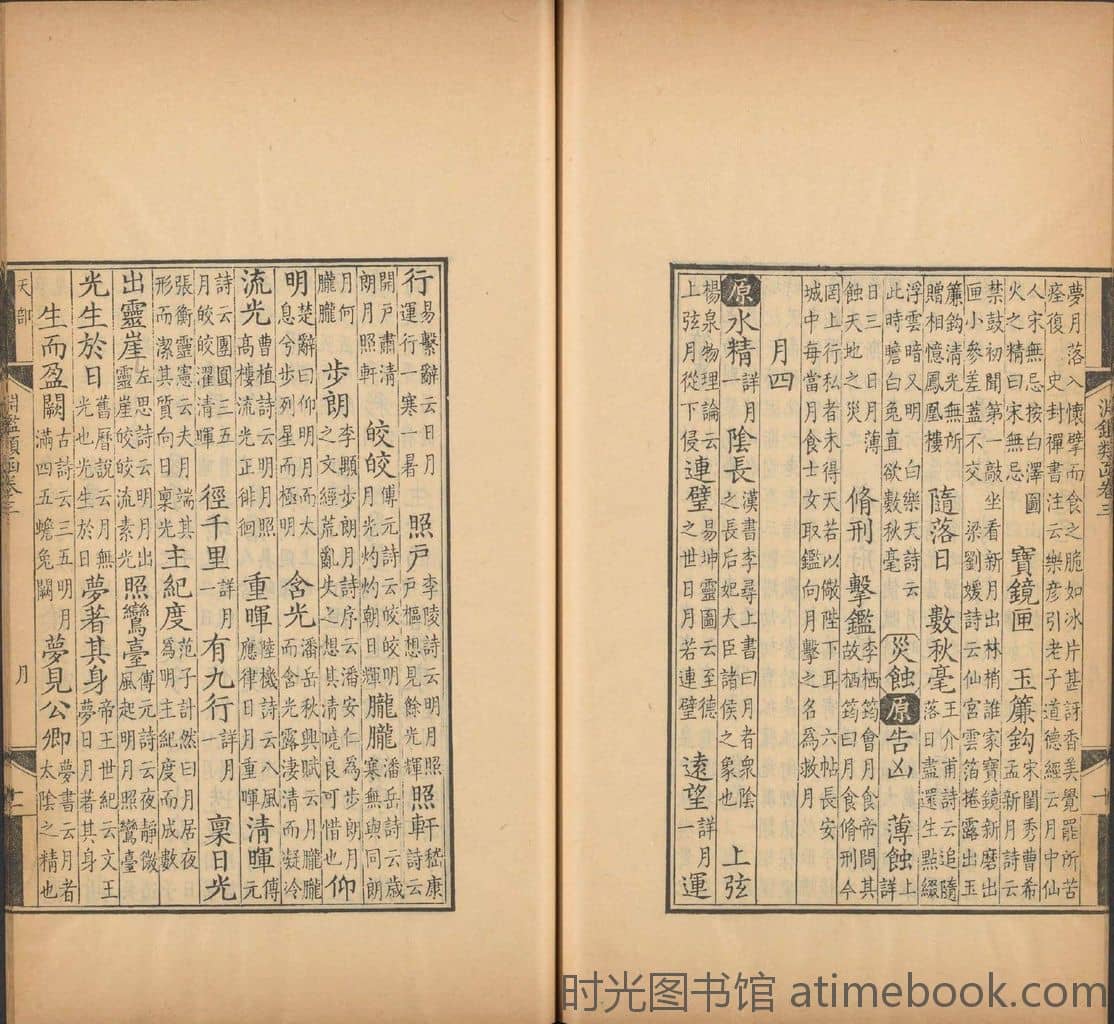 淵鑑類函卷三 十
夢月落入懷擘而食之脆如冰片甚訝香美覺罷所苦痊復 史封禪書注云樂彥引老子道德經云月中仙
人宋無忌按白澤圖火之精曰宋無忌 寶鏡匣 玉簾鉤宋閨秀曹希孟新月詩云
禁鼓初聞第一敲坐看新月出林梢誰家寶鏡新磨出匣小參差蓋不交 梁劉媛詩云仙宮雲箔捲露出玉
簾鉤清光無所贈相憶鳳凰樓 隨落日 數秋毫王介甫詩云追隨落日盡還生點綴
浮雲暗又明 白樂天詩云此時瞻白兔直欲數秋毫 災蝕 原 告凶 薄蝕詳上
日三 日月薄蝕天地之災 脩刑 擊鑑李栖筠會月食帝問其故栖筠曰月食脩刑今
罔上行私者未得天若以儆陛下耳 六帖長安城中每當月食士女取鑑向月擊之名爲救月
月四
原 水精詳月一 陰長漢書李尋上書曰月者衆陰之長后妃大臣諸侯之象也 上弦
楊泉物理論云上弦月從下侵 連璧易坤靈圖云至德之世日月若連璧 遠望詳月一 運
行易繫辭云日月運行一寒一暑 照戶李陵詩云明月照戶樞想見餘光輝 照軒嵇康詩云
開戶肅清朗月照軒 皎皎傅元詩云皎皎明月光灼灼朝日輝 朧朧潘岳詩云歲寒無與同朗
月何朧朧 步朗李顒步朗月詩序云潘安仁爲步朗月之文經荒亂失之想其清曉良可惜也 仰
明楚辭曰仰明月而太息兮步列星而極明 含光潘岳秋興賦云月朧朧而含光露淒清而凝冷
流光曹植詩云明月照高樓流光正徘徊 重暉陸機詩云八風應律日月重暉 清暉傅元
詩云團圓三五月皎皎濯清暉 徑千里詳月一 有九行詳月一 稟日光
張衡靈憲云夫月端其形而潔其質向日稟光 主紀度范子計然曰月居夜爲明主紀度而成數
出靈崖左思詩云明月出靈崖皎皎流素光 照鸞臺傅元詩云夜靜微風起明月照鸞臺
光生於日舊曆說云月無光也光生於日 夢著其身帝王世紀云文王夢日月著其身
生而盈闕古詩云三五明月滿四五蟾兔闕 夢見公卿夢書云月者太陰之精也
天部 淵鑑類函卷三 月 十一
时光图书馆 atimebook.com